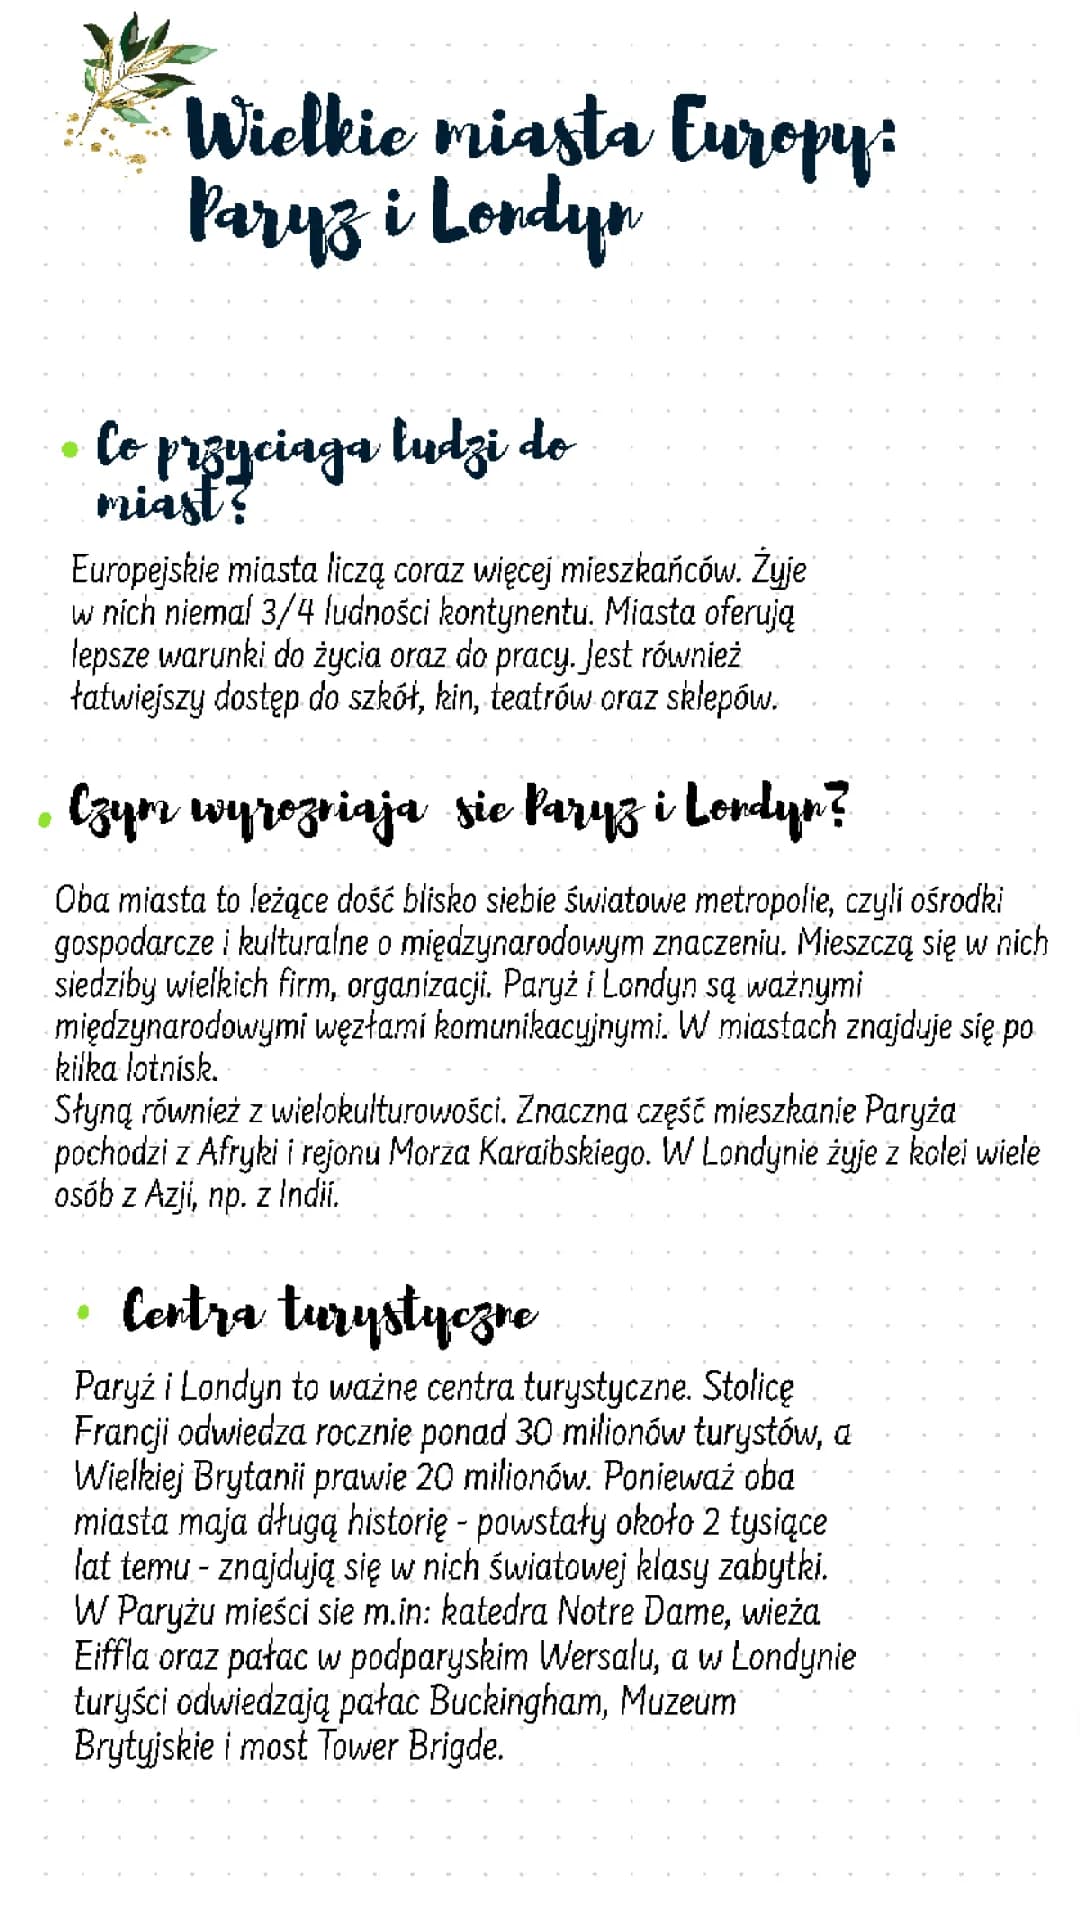 Wielkie miasta Europy:
Paryz i Londyn
Co przyciaga ludzi do
miast?
Europejskie miasta liczą coraz więcej mieszkańców. Żyje
w nich niemal 3/4 ludności kontynentu. Miasta oferują
lepsze warunki do życia oraz do pracy. Jest również
łatwiejszy dostęp do szkół, kin, teatrów oraz sklepów.
Czym wyrozniaja sie Paryz i Londyn?
Oba miasta to leżące dość blisko siebie światowe metropolie, czyli ośrodki
gospodarcze i kulturalne o międzynarodowym znaczeniu. Mieszczą się w nich
siedziby wielkich firm, organizacji. Paryż i Londyn są ważnymi
międzynarodowymi węzłami komunikacyjnymi. W miastach znajduje się po
kilka lotnisk.
Słyną również z wielokulturowości. Znaczna część mieszkanie Paryża
pochodzi z Afryki i rejonu Morza Karaibskiego. W Londynie żyje z kolei wiele
osób z Azji, np. z Indii.
Centra turystyczne
Paryż i Londyn to ważne centra turystyczne. Stolicę
Francji odwiedza rocznie ponad 30 milionów turystów, a
Wielkiej Brytanii prawie 20 milionów. Ponieważ oba
miasta maja długą historię - powstały około 2 tysiące
lat temu - znajdują się w nich światowej klasy zabytki.
W Paryżu mieści sie m.in: katedra Notre Dame, wieża
Eiffla oraz pałac w podparyskim Wersalu, a w Londynie
turyści odwiedzają pałac Buckingham, Muzeum
Brytyjskie i most Tower Brigde.